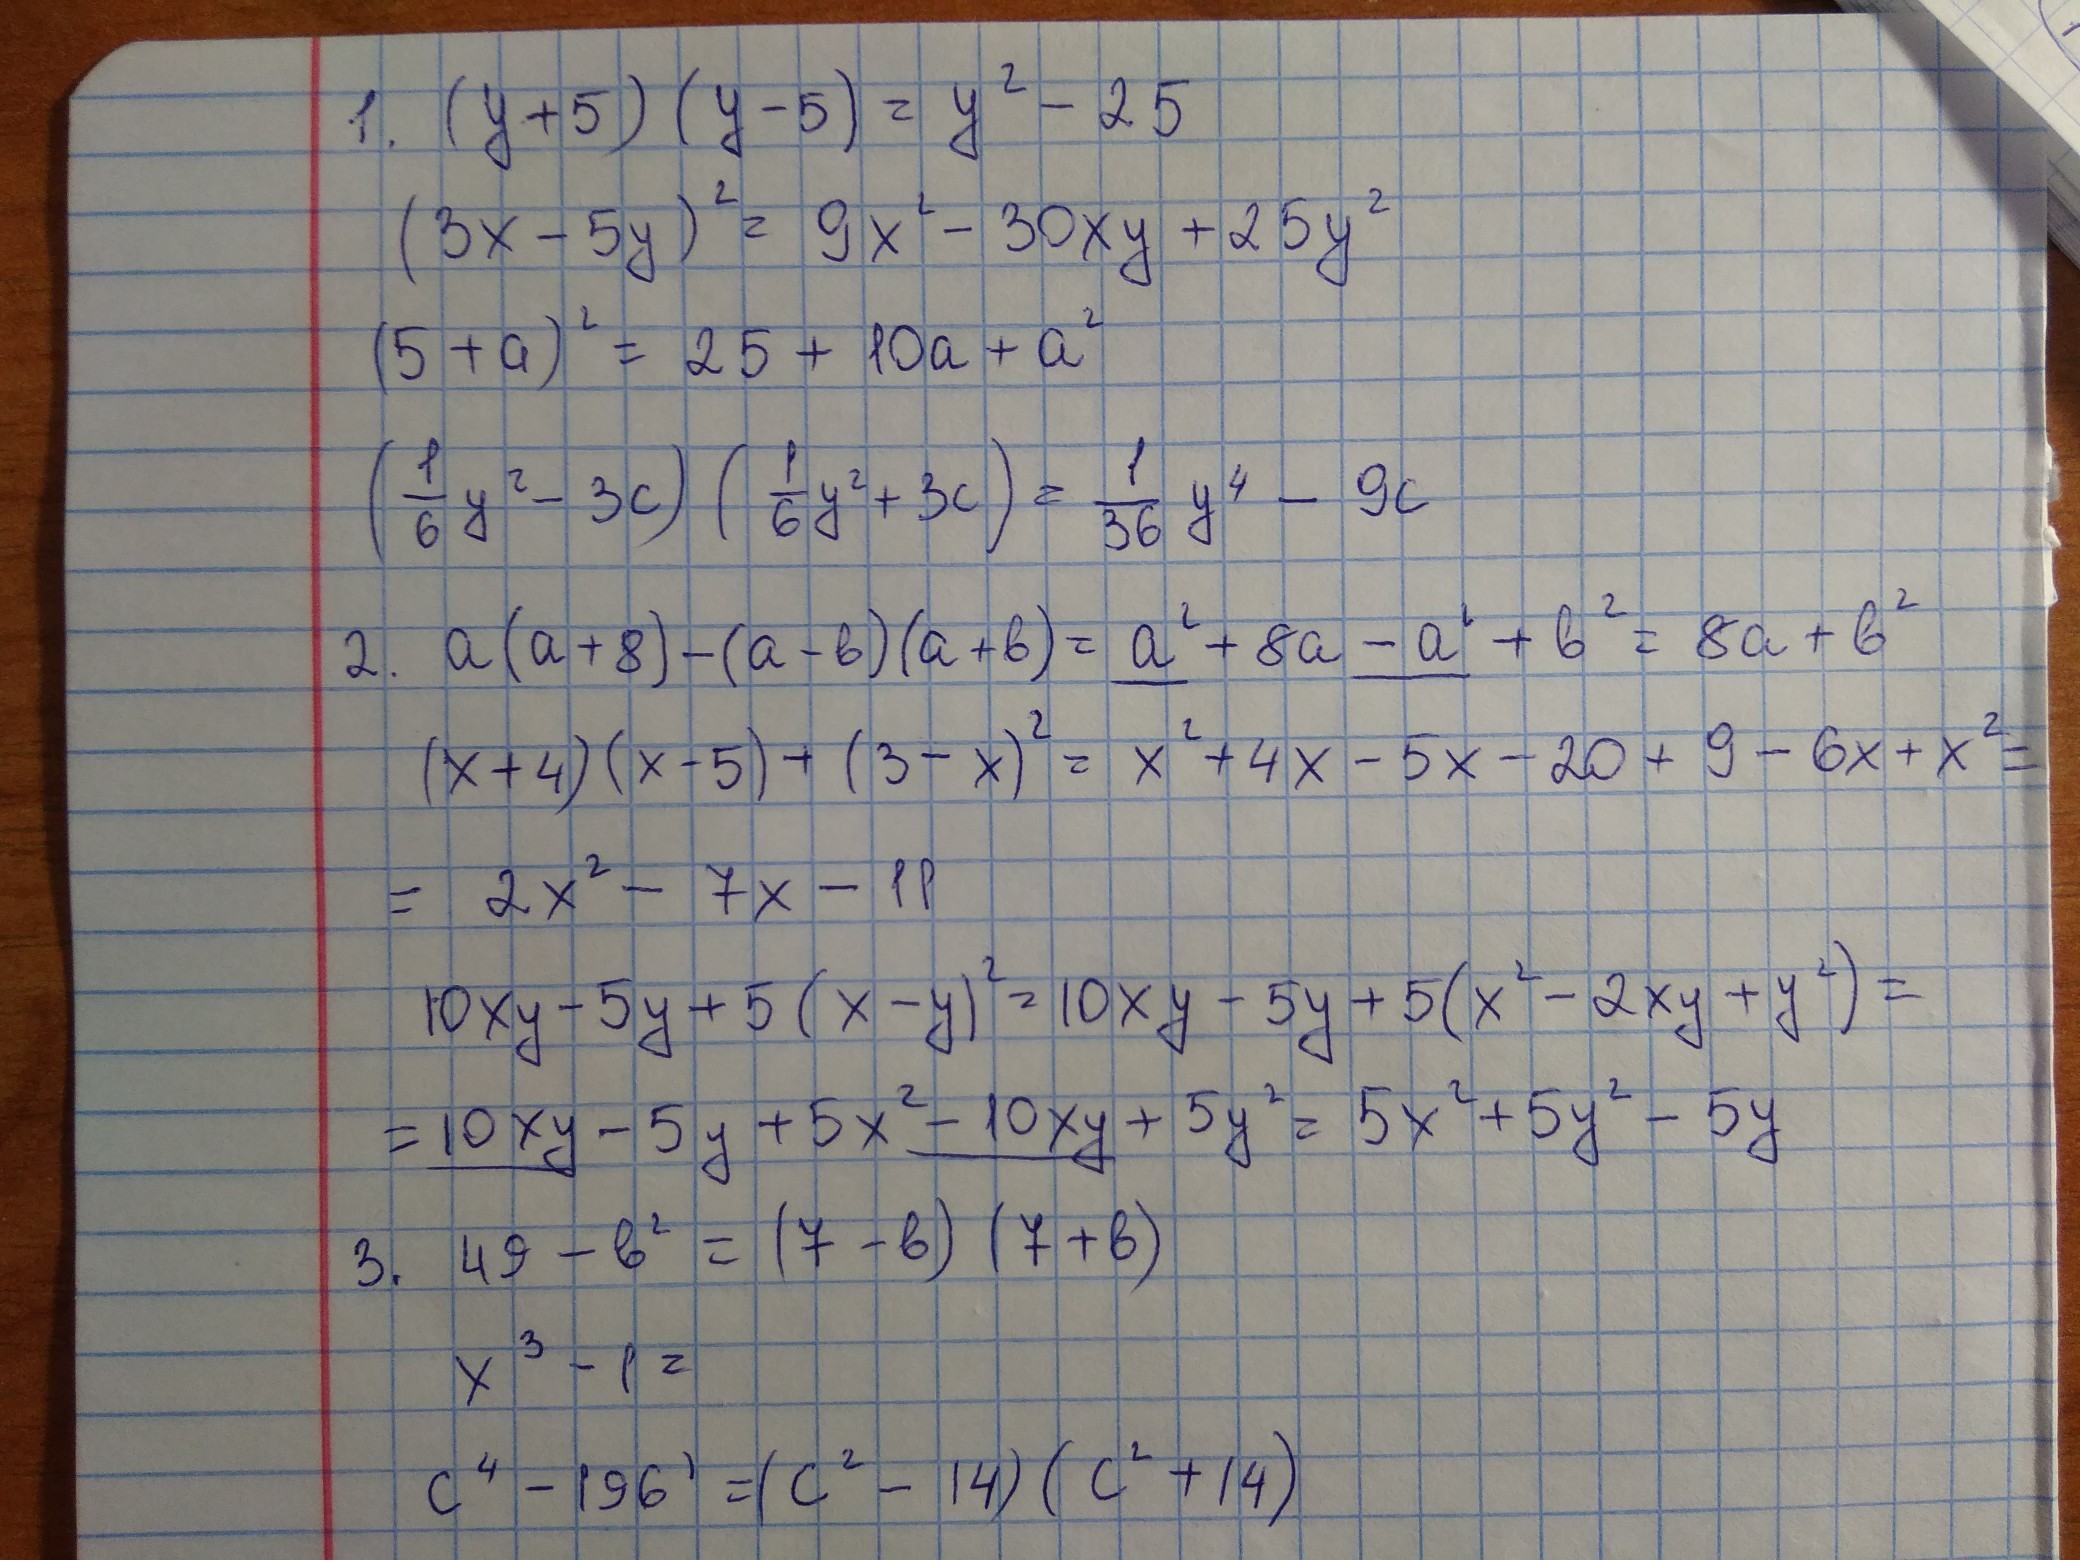 1. (y+5)(y-5) = y² - 25
(3x - 5y)² = 9x² - 30xy + 25y²
(5 + a)² = 25 + 10a + a²
(1/6 y² - 3c)(1/6 y² + 3c) = 1/36 y⁴ - 9c
2. a(a+8) - (a-в)(a+в) = a² + 8a - a² + в² = 8a + в²
(x+4)(x-5) + (3-x)² = x² + 4x - 5x - 20 + 9 - 6x + x² =
= 2x² - 7x - 11
10xy - 5y + 5(x-y)² = 10xy - 5y + 5(x² - 2xy + y²) =
= 10xy - 5y + 5x² - 10xy + 5y² = 5x² + 5y² - 5y
3. 49 - в² = (7 - в)(7 + в)
x³ - 1 =
c⁴ - 196 = (c² - 14)(c² + 14)